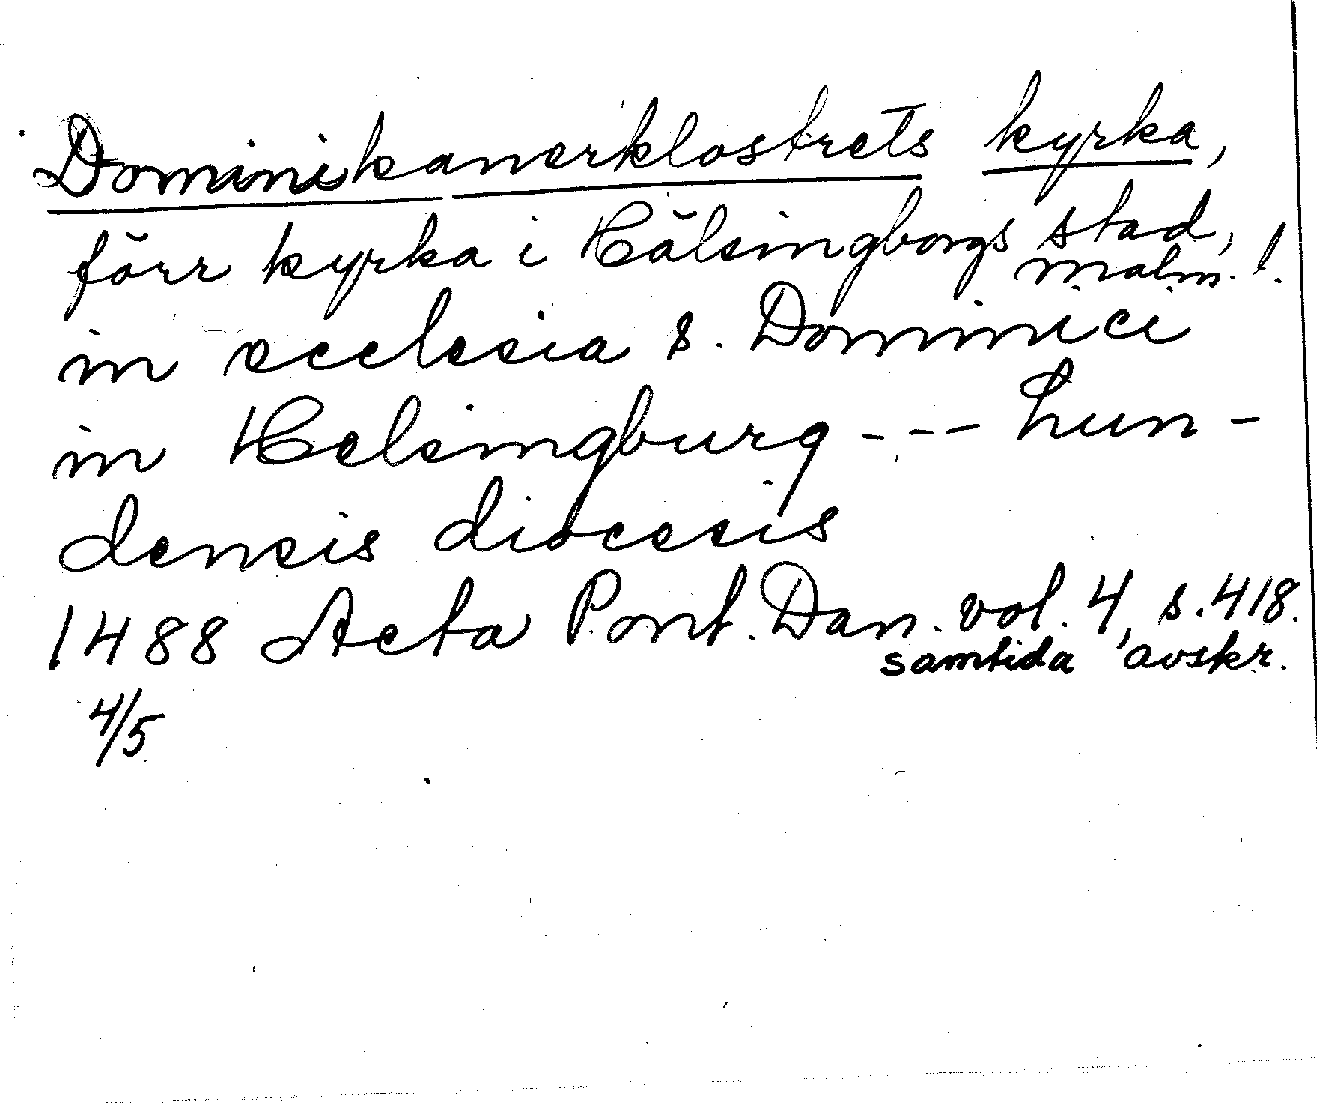 Dominikanerklostrets kyrka,
förr kyrka i Hälsingborgs stad,
malm. l.
in ecclesia s. Dominici
in Helsingburg --- Lun-
densis diocesis
1488 Acta Pont. Dan. vol. 4, s. 418.
samtida avskr.
4/5